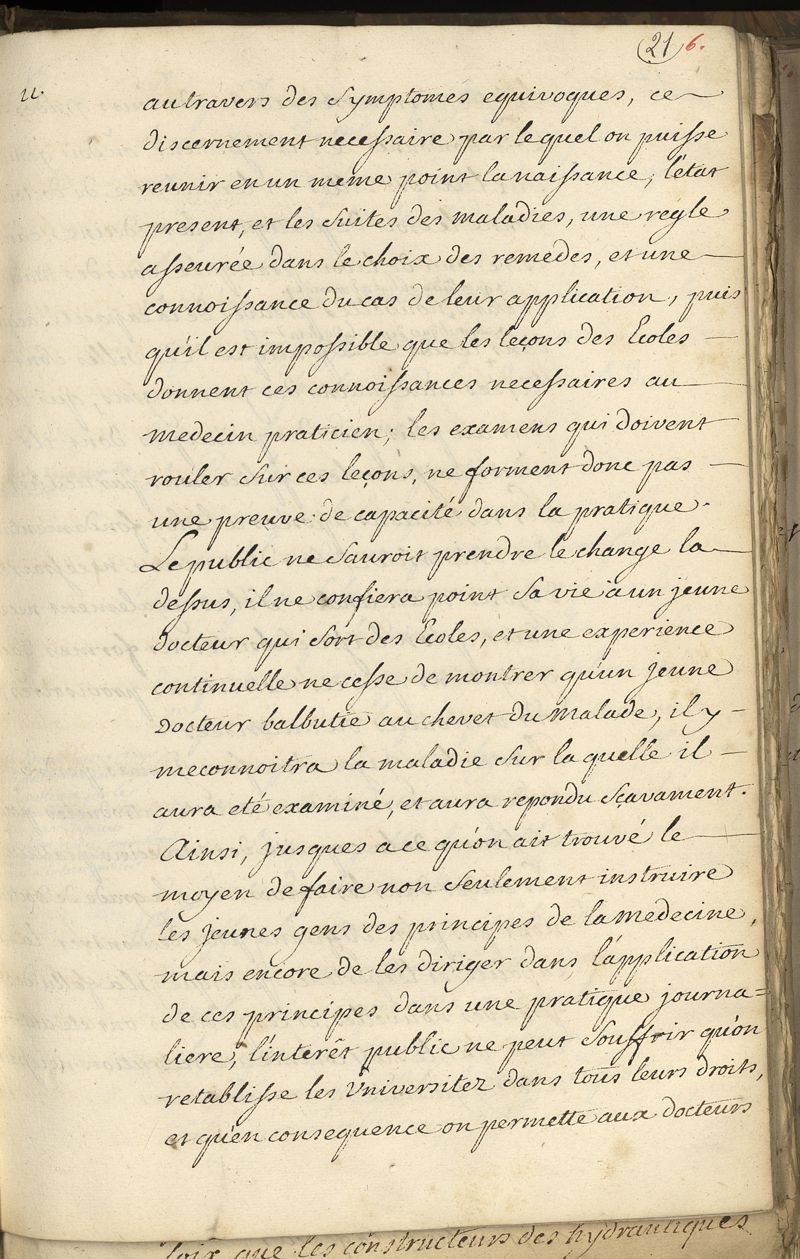 21 6.
11.
au travers des symptomes equivoques, ce
discernement necessaire par lequel on puisse
reunir en un meme point la naissance, l'etat
present, et les suites des maladies, une regle
asseurée dans le choix des remedes, et une
connoissance du cas de leur application, puis
qu'il est impossible que les leçons des Ecoles
donnent ces connoissances necessaires au
medecin praticien; les examens qui doivent
rouler sur ces leçons, ne forment donc pas
une preuve de capacité dans la pratique.
Le public ne sauroit prendre le change la
dessus, il ne confiera point sa vie à un jeune
docteur qui sort des Ecoles, et une experience
continuelle ne cesse de montrer qu'un jeune
Docteur balbutie au chevet du malade, il y
meconnoitra la maladie sur la quelle il
aura eté examiné, et aura repondu sçavament.
Ainsi, jusques a ce qu'on ait trouvé le
moyen de faire non seulement instruire
les jeunes gens des principes de la medecine,
mais encore de les diriger dans l'application
de ces principes dans une pratique journa=
liere, l'interêt public ne peut souffrir qu'on
retablisse les Universitez dans tous leurs droits,
et qu'en consequence on permette aux docteurs
que les constructeurs des hydrauliques